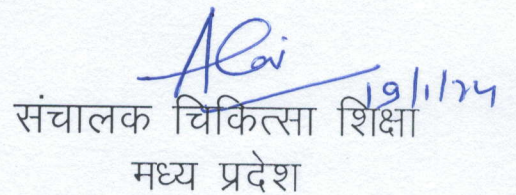 19/1/24
संचालक चिकित्सा शिक्षा
मध्य प्रदेश